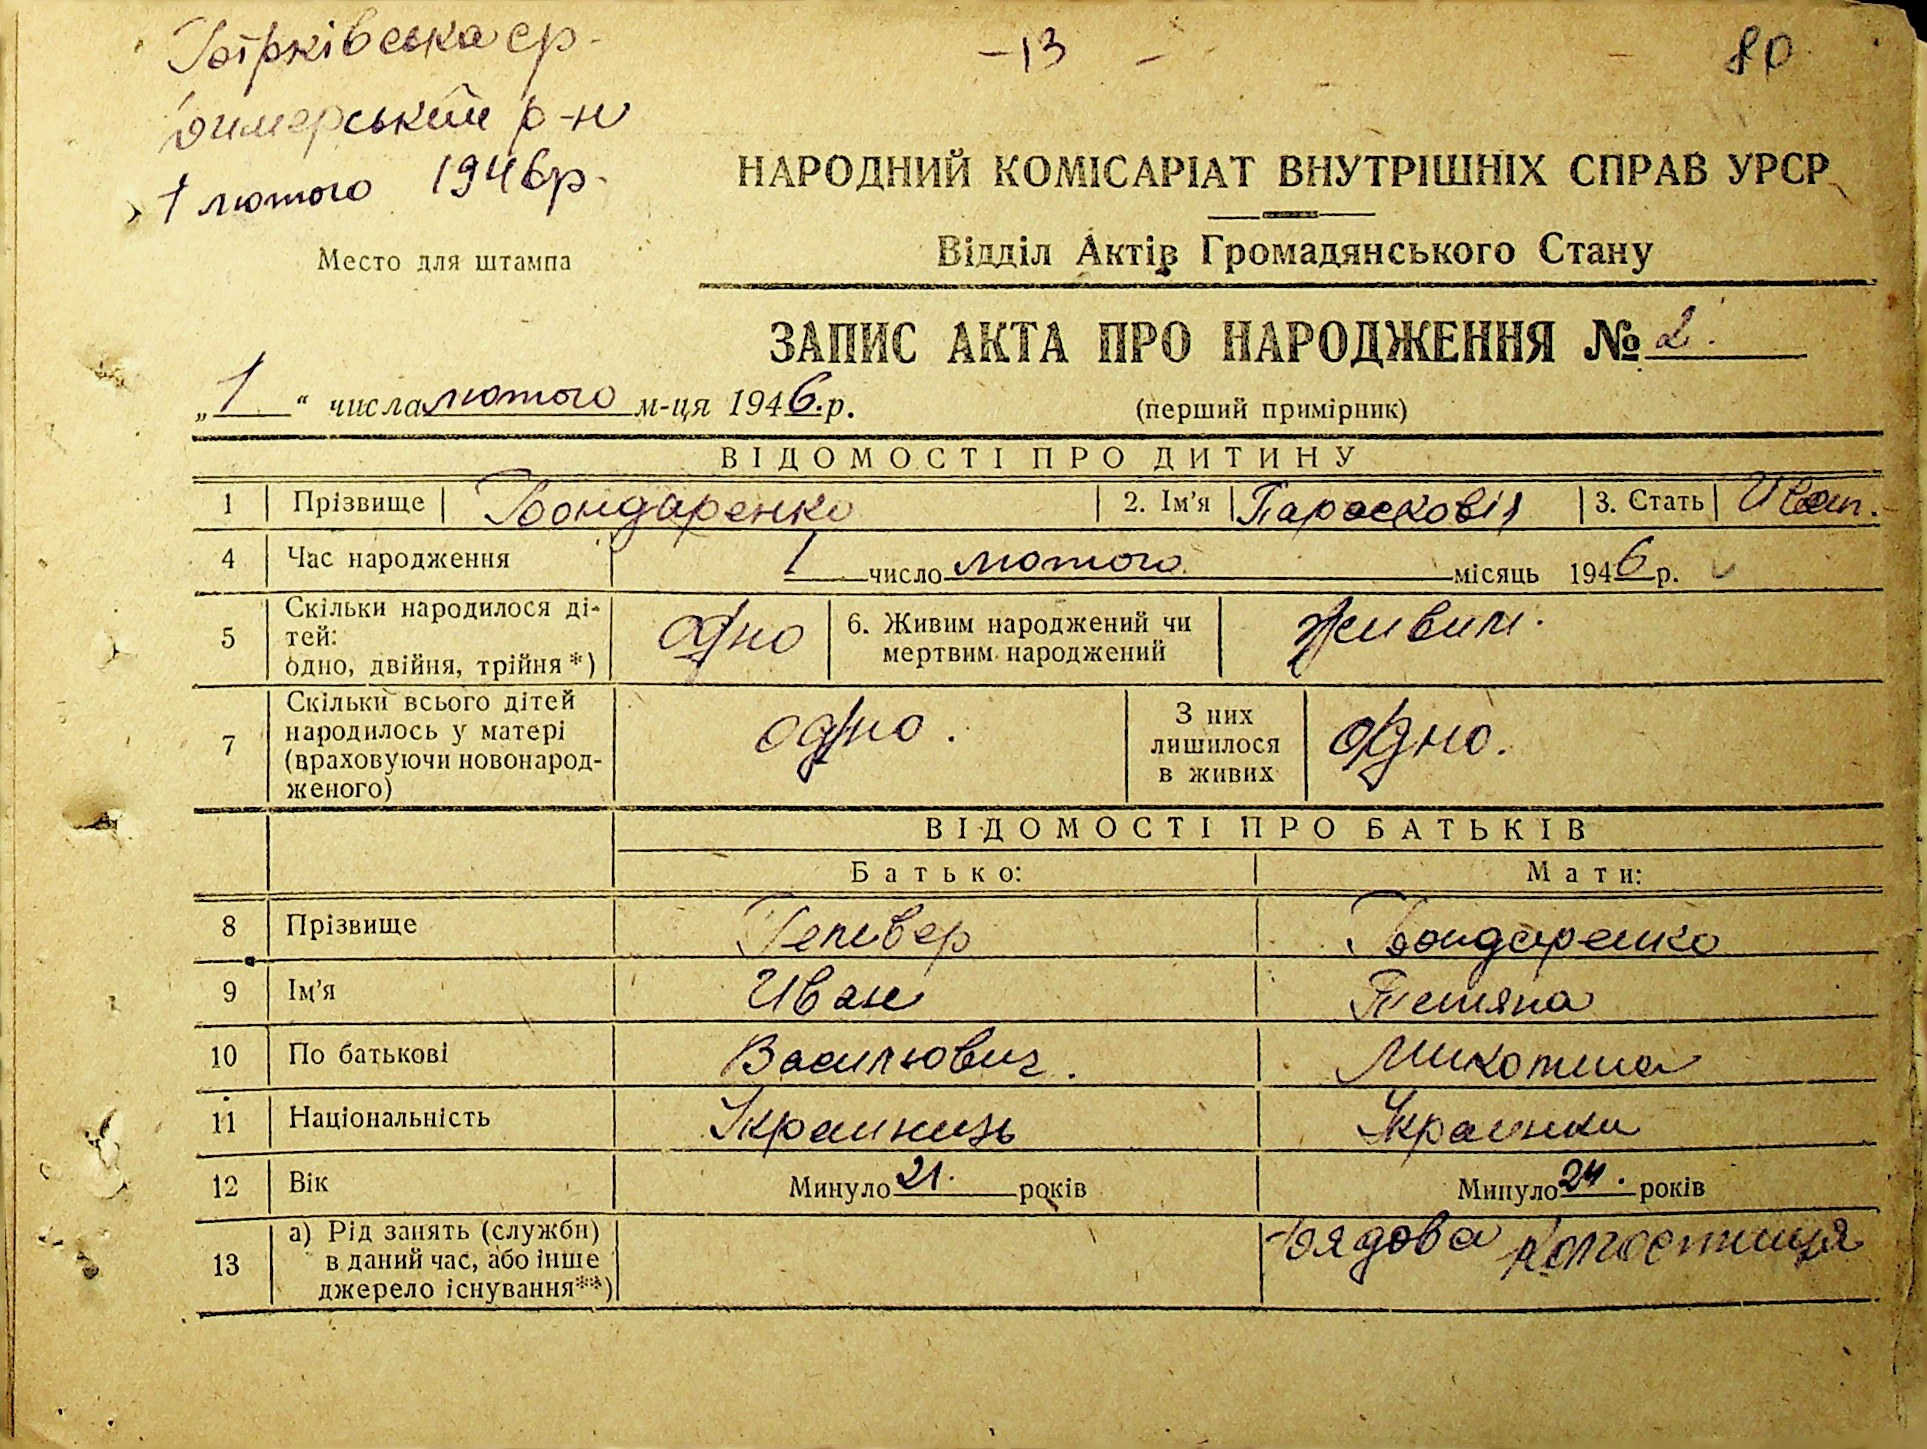 Бірківська ср.
Димерський р-н
1 лютого 1946 р.
- 13 -
80
Место для штампа
НАРОДНИЙ КОМІСАРІАТ ВНУТРІШНІХ СПРАВ УРСР
Відділ Актів Громадянського Стану
ЗАПИС АКТА ПРО НАРОДЖЕННЯ № 2.
„ 1 “ числа лютого м-ця 1946.р.
(перший примірник)
ВІДОМОСТІ ПРО ДИТИНУ
1 Прізвище Бондаренко 2. Ім'я Парасковія 3. Стать
4 Час народження 1 число лютого місяць 1946 р.
5 Скільки народилося ді-
тей:
одно, двійня, трійня *) одно 6. Живим народжений чи
мертвим народжений живим.
7 Скільки всього дітей
народилось у матері
(враховуючи новонарод-
женого) одно. З них
лишилося
в живих одно.
ВІДОМОСТІ ПРО БАТЬКІВ
Батько: Мати:
8 Прізвище Бондаренко
9 Ім'я Иван Тетяна
10 По батькові Васильович.
11 Національність Украинець Украинка
12 Вік Минуло 21. років Минуло 24. років
13 а) Рід занять (служби)
в даний час, або інше
джерело існування**) рядова колгоспниця